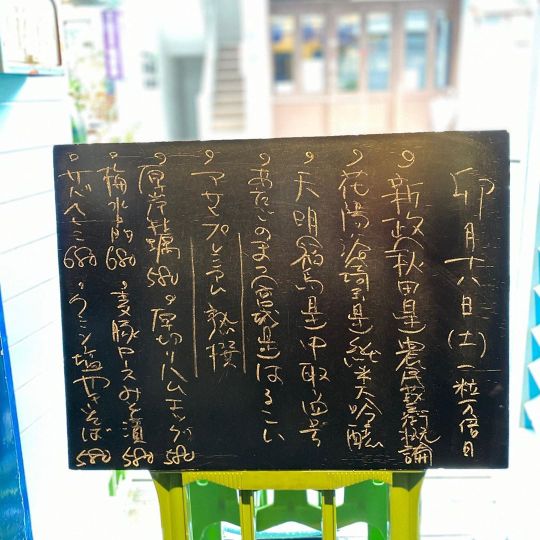 卯月十八日(土)一粒万倍日
新政(秋田県)農民芸術概論
花陽浴(埼玉県)純米大吟醸
天明(福島県)中取壱号
あたごのまつ(宮城県)はるこい
アサヒプレミアム熟撰
厚岸牡蠣 580 厚切りハムエッグ 580
梅水晶 680 麦豚ロースみそ漬 580
サバへしこ 680 タコミン塩やきそば 580